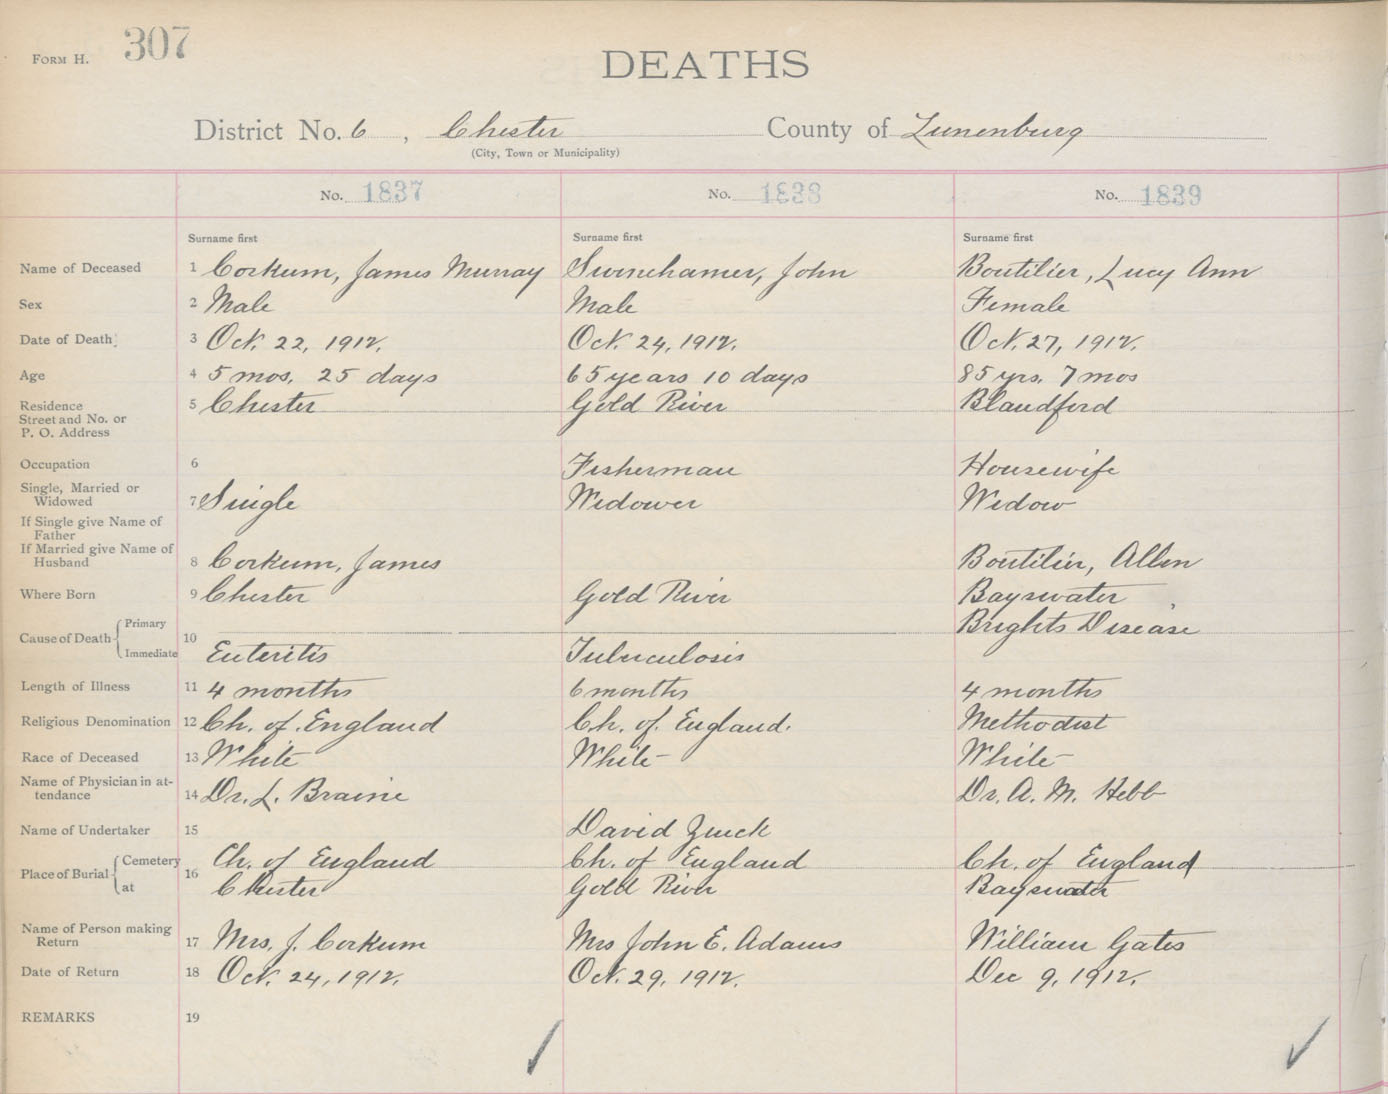 FORM H. 307
DEATHS
District No. 6, Chester County of Lunenburg
(City, Town or Municipality)
No. 1837 No. 1838 No. 1839
Surname first Surname first Surname first
Name of Deceased 1 Corkum, James Murray Swinehamer, John Boutilier, Lucy Ann
Sex 2 Male Male Female
Date of Death 3 Oct. 22, 1912. Oct. 24, 1912. Oct. 27, 1912.
Age 4 5 mos. 25 days 65 years 10 days 85 yrs. 7 mos
Residence 5 Chester Gold River Blandford
Street and No. or
P. O. Address
Occupation 6 Fisherman Housewife
Single, Married or
Widowed 7 Single Widower Widow
If Single give Name of
Father
If Married give Name of
Husband 8 Corkum, James Boutilier, Allen
Where Born 9 Chester Gold River Bayswater
Primary Brights Disease
Cause of Death 10
Immediate Enteritis Tuberculosis
Length of Illness 11 4 months 6 months 4 months
Religious Denomination 12 Ch. of England Ch. of England. Methodist
Race of Deceased 13 White White White
Name of Physician in at-
tendance 14 Dr. L. Braine Dr. A. M. Hebb
Name of Undertaker 15 David Zinck
Cemetery Ch. of England Ch. of England Ch. of England
Place of Burial 16
at Chester Gold River Bayswater
Name of Person making
Return 17 Mrs. J. Corkum Mrs John E. Adams William Gates
Date of Return 18 Oct. 24, 1912. Oct. 29, 1912. Dec 9, 1912.
REMARKS 19